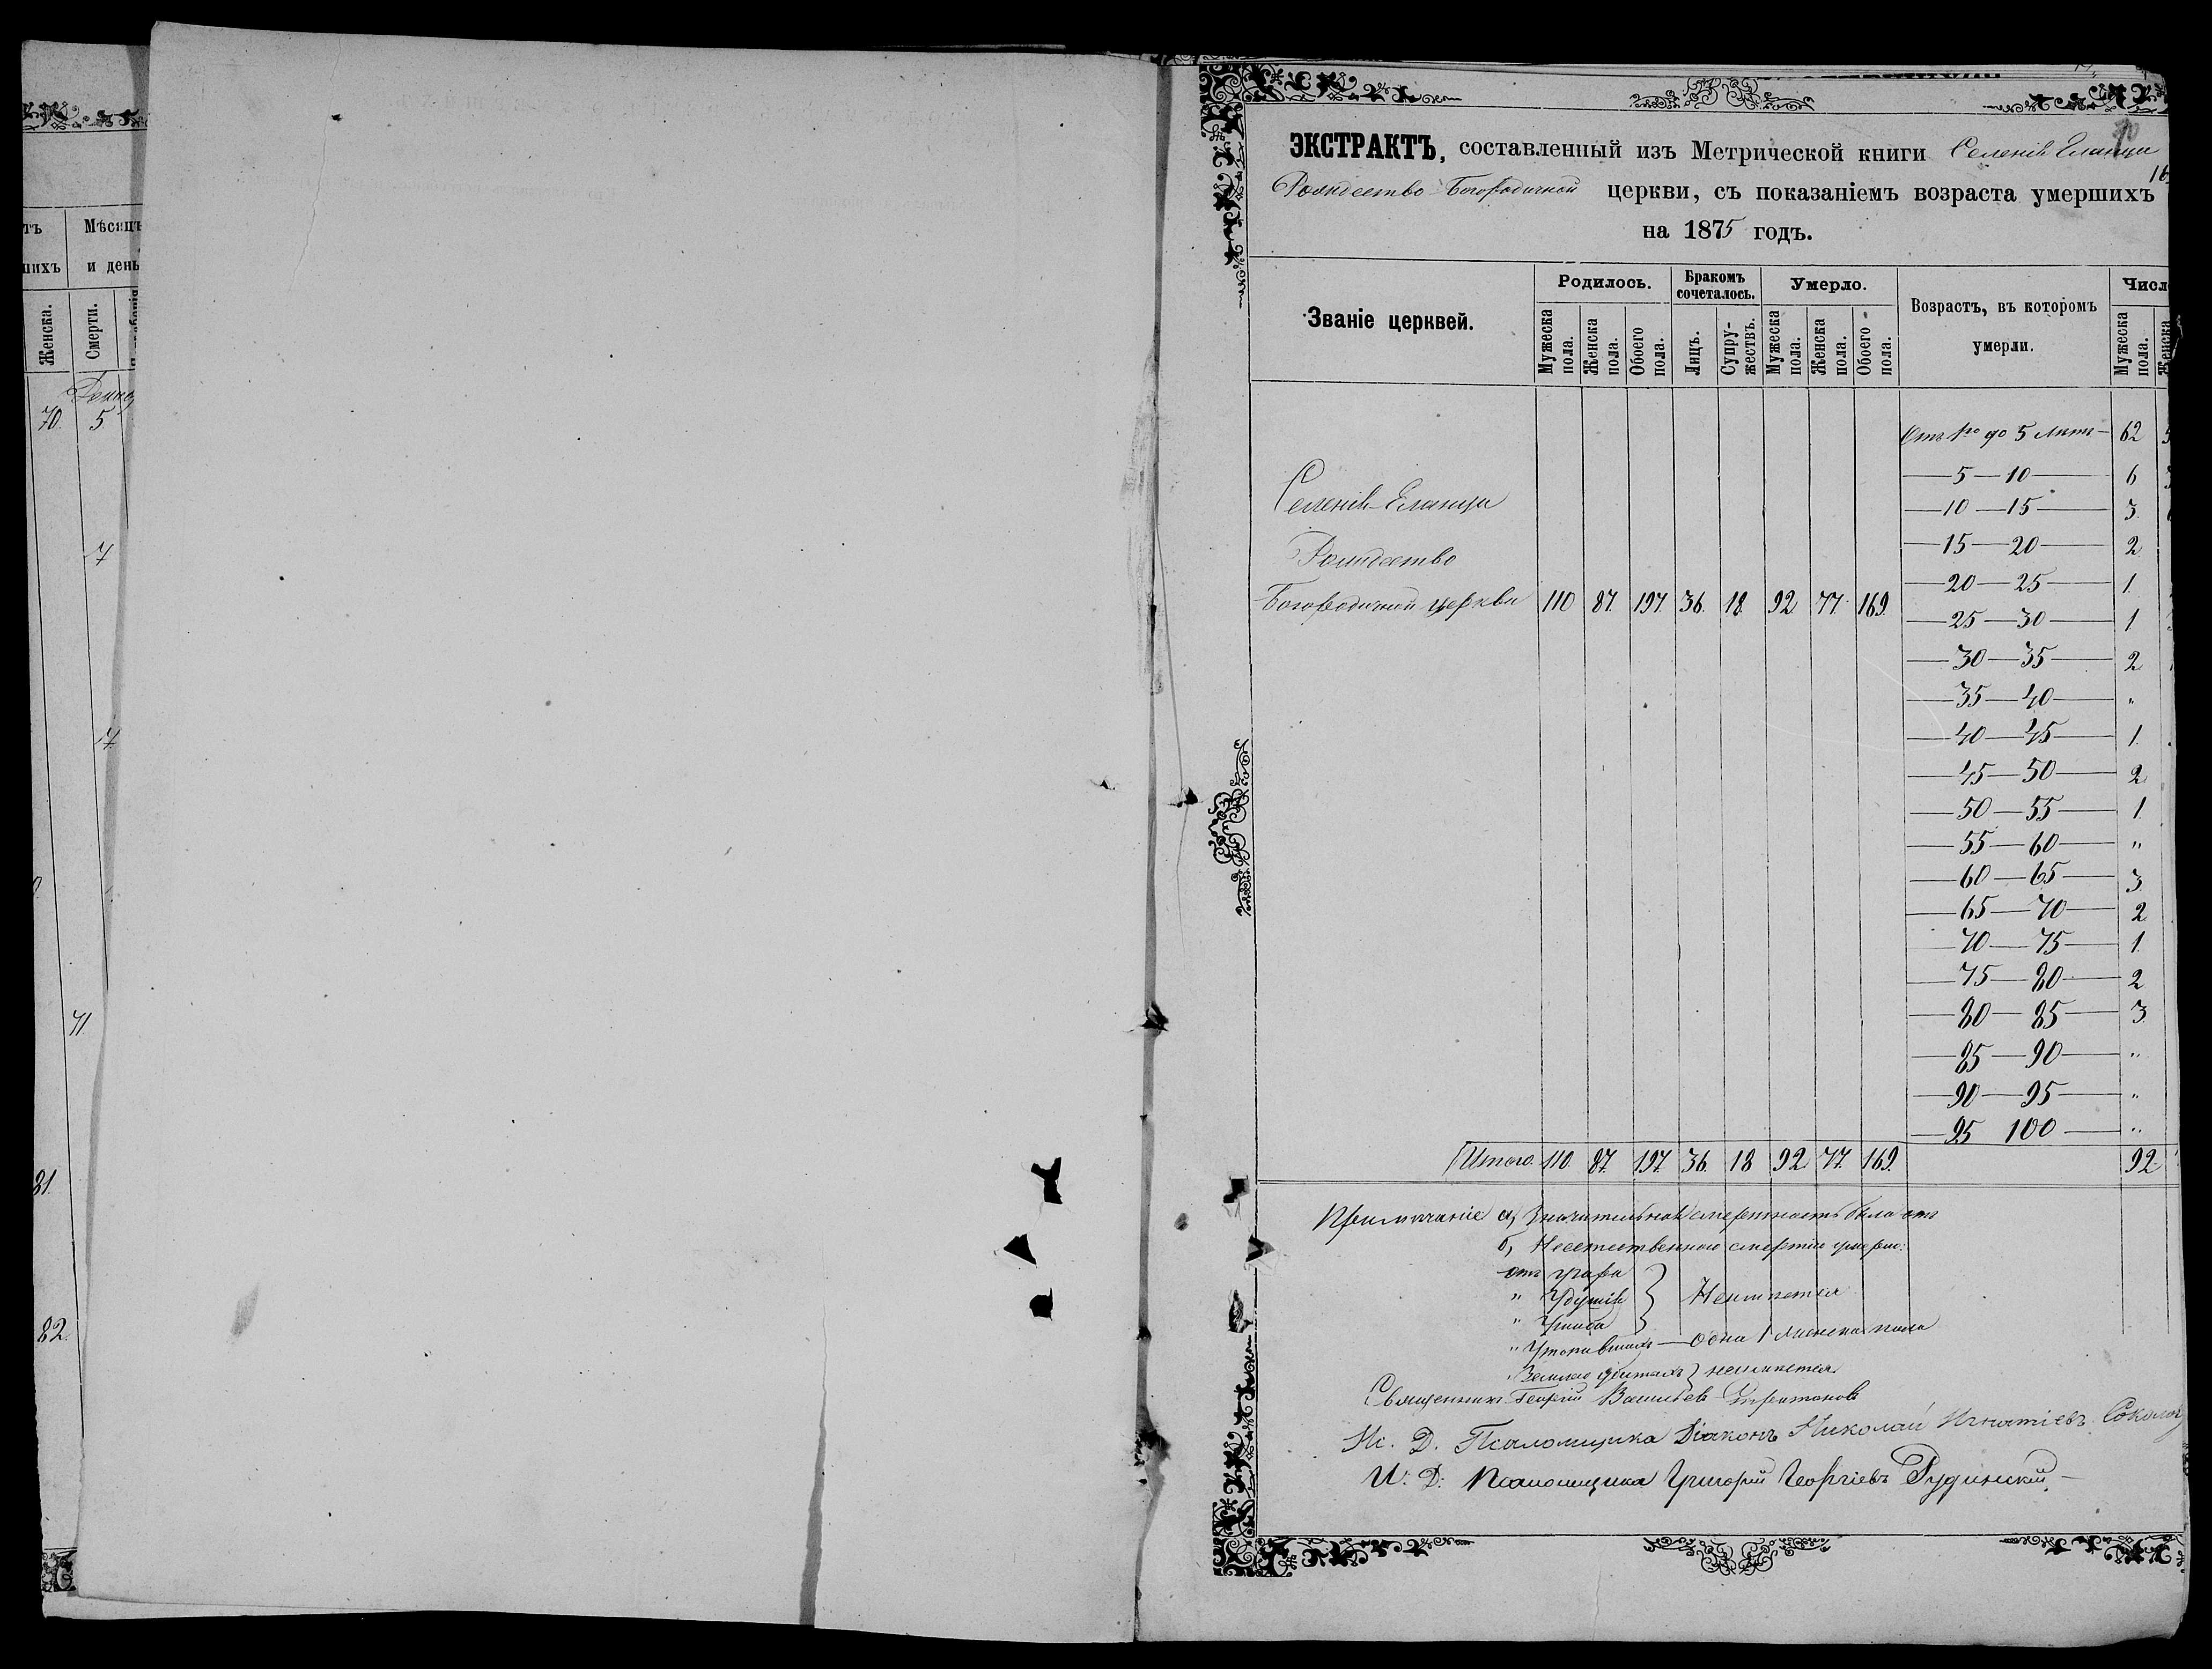 тъ
шихъ
Мѣсяцъ
и день
Женска.
Смерти.
70. 5
7
7
71.
81.
82.
ЭКСТРАКТЪ, составленный изъ Метрической книги Селенія Еланцы
Рождество-Богородичной церкви, съ показаніемъ возраста умершихъ
на 1875 годъ.
Званіе церквей.
Родилось.
Бракомъ сочеталось.
Умерло.
Возрастъ, въ которомъ умерли.
Число
Мужеска пола.
Женска пола.
Обоего пола.
Лицъ.
Супружествъ.
Мужеска пола.
Женска пола.
Обоего пола.
Мужеска пола.
Женска
Отъ 1го до 5 лѣтъ — 62
— 5 — 10 — 6
Селенія Еланцы
— 10 — 15 — 3.
Рождество
— 15 — 20 — 2
— 20 — 25 — 1.
Богородичной церкви 110 87. 197. 36. 18. 92. 77. 169.
— 25 — 30 — 1
— 30 — 35 — 2
— 35 — 40 — "
— 40 — 45 — 1.
— 45 — 50 — 2
— 50 — 55 — 1.
— 55 — 60 — "
— 60 — 65 — 3.
— 65 — 70 — 2
— 70 — 75 — 1.
— 75 — 80 — 2
— 80 — 85 — 3.
— 85 — 90 — "
— 90 — 95 — "
— 95 100 — "
Итого. 110. 87. 197. 36. 18 92. 77. 169. 92.
Примѣчаніе а, Значительная смертность была отъ
б, Неестественною смертію умерло:
отъ
" } Неимѣется
"
" Утопившихъ — одна 1 женска пола
" Землею убитыхъ } неимѣется.
Священникъ Георгій Васильевъ
Ис. Д. Псаломщика Діаконъ Николай Игнатіевъ Соколов
И. Д. Псаломщика Григорій Георгіевъ Рудинскій. —